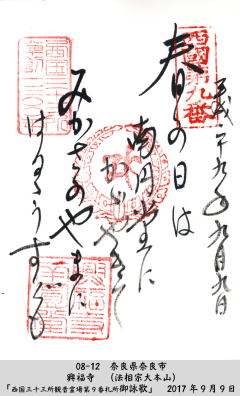 西國第九番
平成二十九年九月九日
春の日は
南円堂に
かがやきて
みかさのやまに
はるるうすぐも
08-12　奈良県奈良市
興福寺　（法相宗大本山）
「西国三十三所観音霊場第９番札所御詠歌」　2017年９月９日